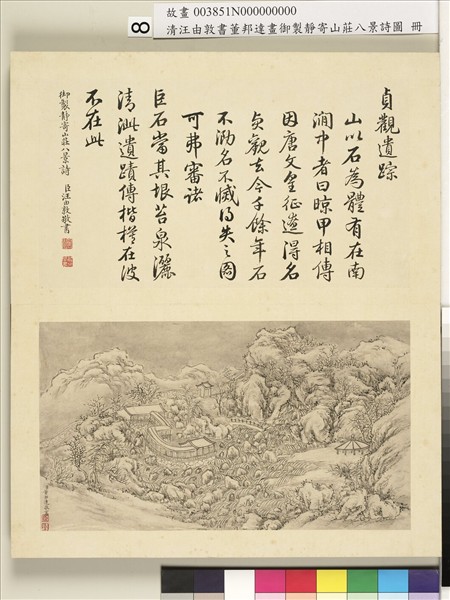 故畫 003851N000000000
清汪由敦書董邦達畫御製靜寄山莊八景詩圖 冊
8
貞觀遺踪
山以石為體有在南
澗中者曰晾甲相傳
因唐文皇征遼得名
貞觀去今千餘年石
不泐名不滅得失之圖
可弗審諸
巨石當其垠苔泉灑
清泚遺蹟傳楷模在彼
不在此
御製靜寄山莊八景詩 臣汪由敦敬書